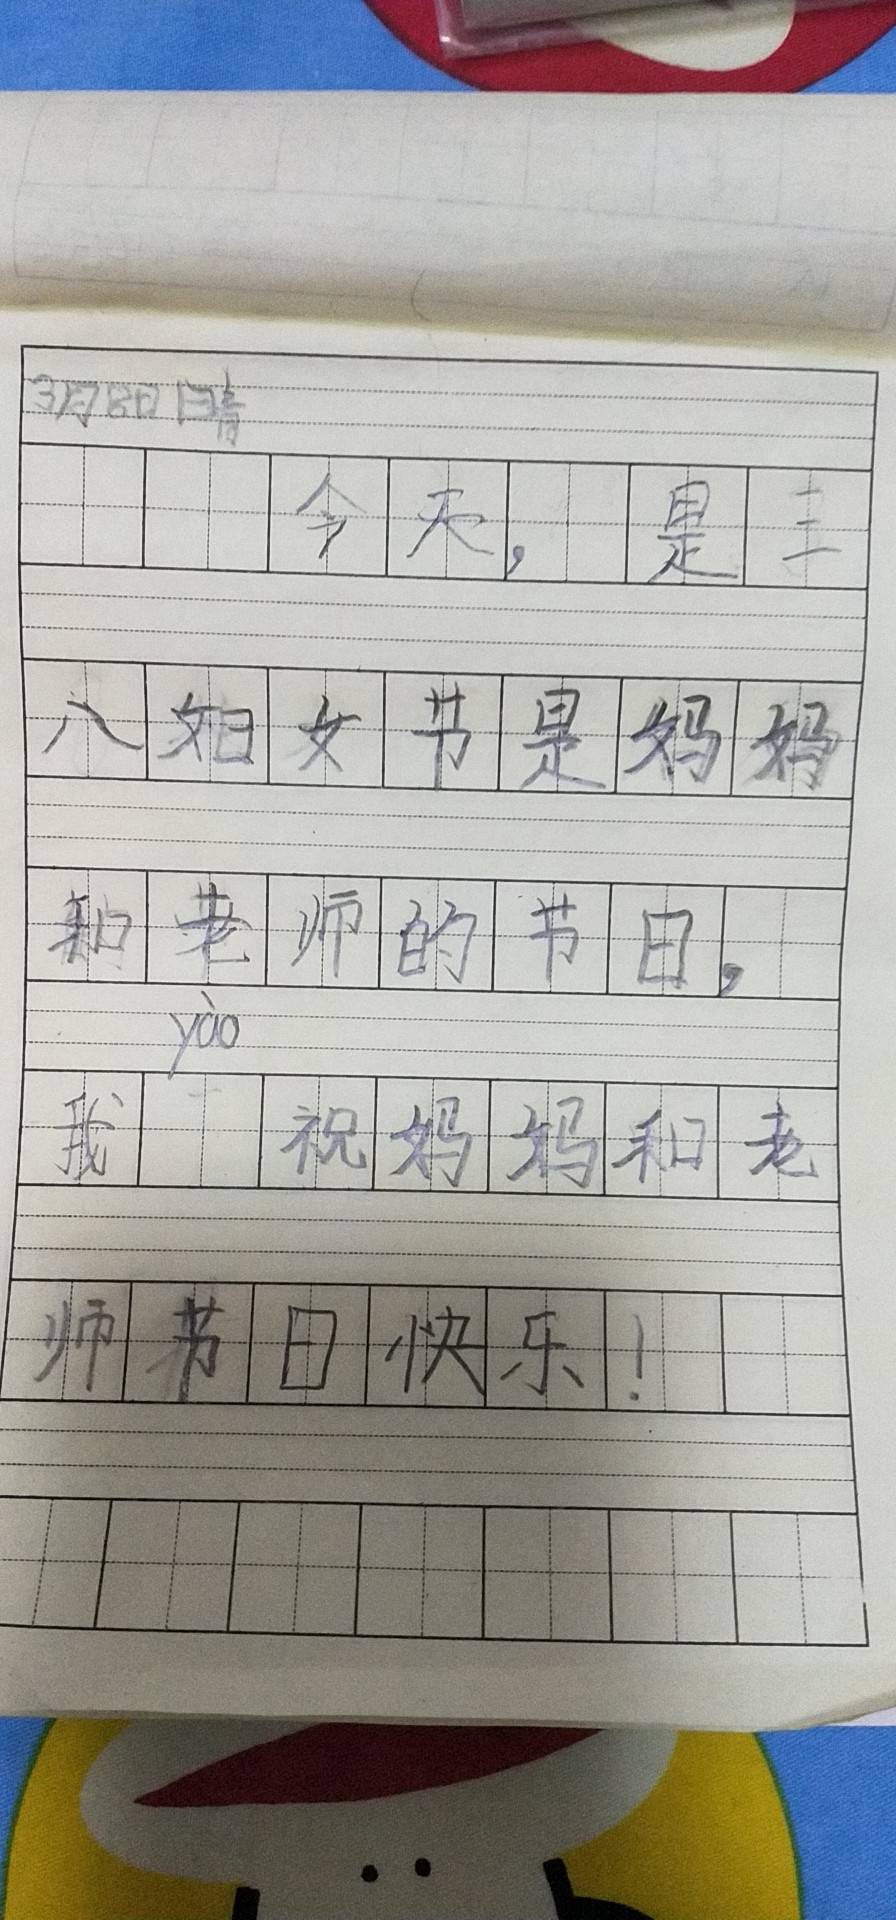 3月8日 晴
今天，是三
八妇女节是妈妈
和老师的节日，
yào
我 祝妈妈和老
师节日快乐！